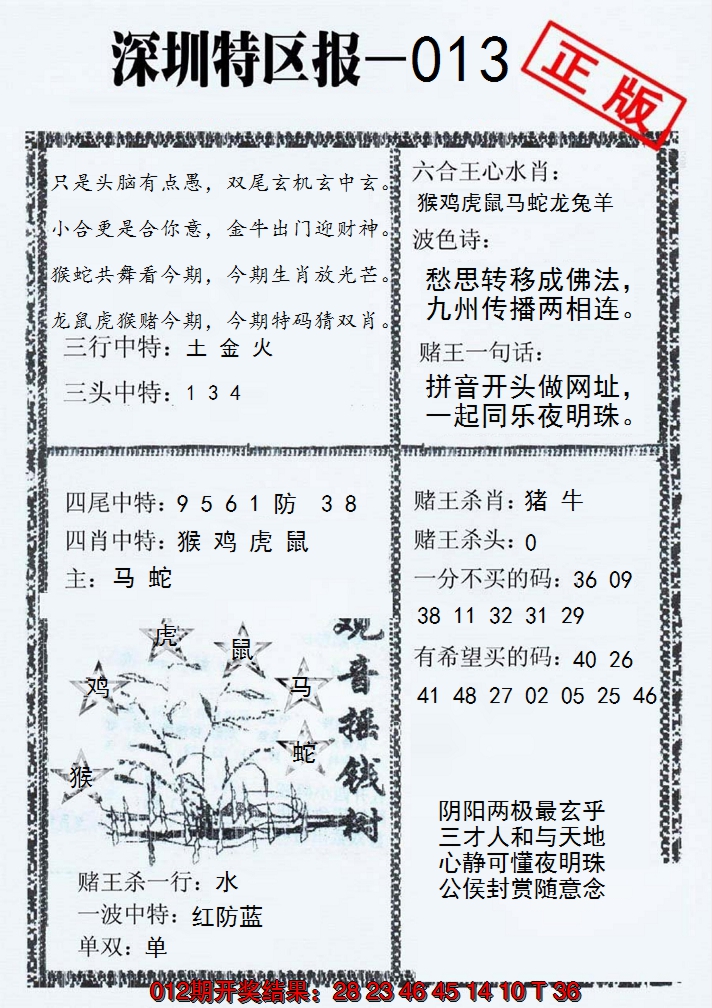 深圳特区报—013
正版
只是头脑有点愚，双尾玄机玄中玄。
小合更是合你意，金牛出门迎财神。
猴蛇共舞看今期，今期生肖放光芒。
龙鼠虎猴赌今期，今期特码猜双肖。
三行中特：土 金 火
三头中特：1 3 4
六合王心水肖：
猴鸡虎鼠马蛇龙兔羊
波色诗：
愁思转移成佛法，
九州传播两相连。
赌王一句话：
拼音开头做网址，
一起同乐夜明珠。
四尾中特：9 5 6 1 防 3 8
四肖中特：猴 鸡 虎 鼠
主：马 蛇
虎
鼠
鸡
马
蛇
猴
观音摇钱树
赌王杀一行：水
一波中特：红防蓝
单双：单
赌王杀肖：猪 牛
赌王杀头：0
一分不买的码：36 09
38 11 32 31 29
有希望买的码：40 26
41 48 27 02 05 25 46
阴阳两极最玄乎
三才人和与天地
心静可懂夜明珠
公侯封赏随意念
012期开奖结果：28 23 46 45 14 10 T 36